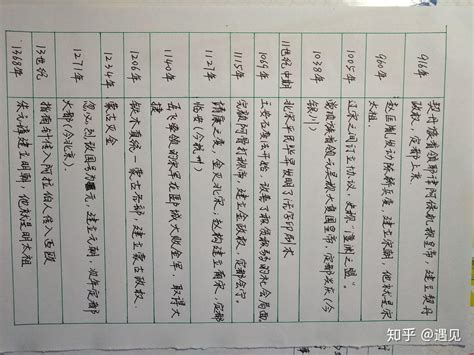 916年
契丹族首领耶律阿保机称皇帝，建立契丹
政权，定都上京
960年
赵匡胤发动陈桥兵变，建立宋朝，他就是宋
太祖.
1005年
辽宋之间订立协议，史称"澶渊之盟。"
1038年
党项族首领元昊称大夏国皇帝，定都兴庆(今
银川)
11世纪中期
北宋平民毕昇发明了活字印刷术
1069年
王安石变法开始，积贫积弱的社会局面
1115年
完颜阿骨打称帝，建立金政权，定都会宁。
1127年
靖康之变，金灭北宋，赵构建立南宋，定都
临安(今杭州)
1140年
岳飞率领的宋军在郾城大败金军，取得大
捷
1206年
铁木真统一蒙古各部，建立蒙古政权.
1234年
蒙古灭金
1271年
忽必烈改国号为元，建立元朝，次年定都
大都(今北京).
13世纪
指南针传入阿拉伯人传入西欧
1368年
朱元璋建立明朝，他就是明太祖
知乎 @遇见